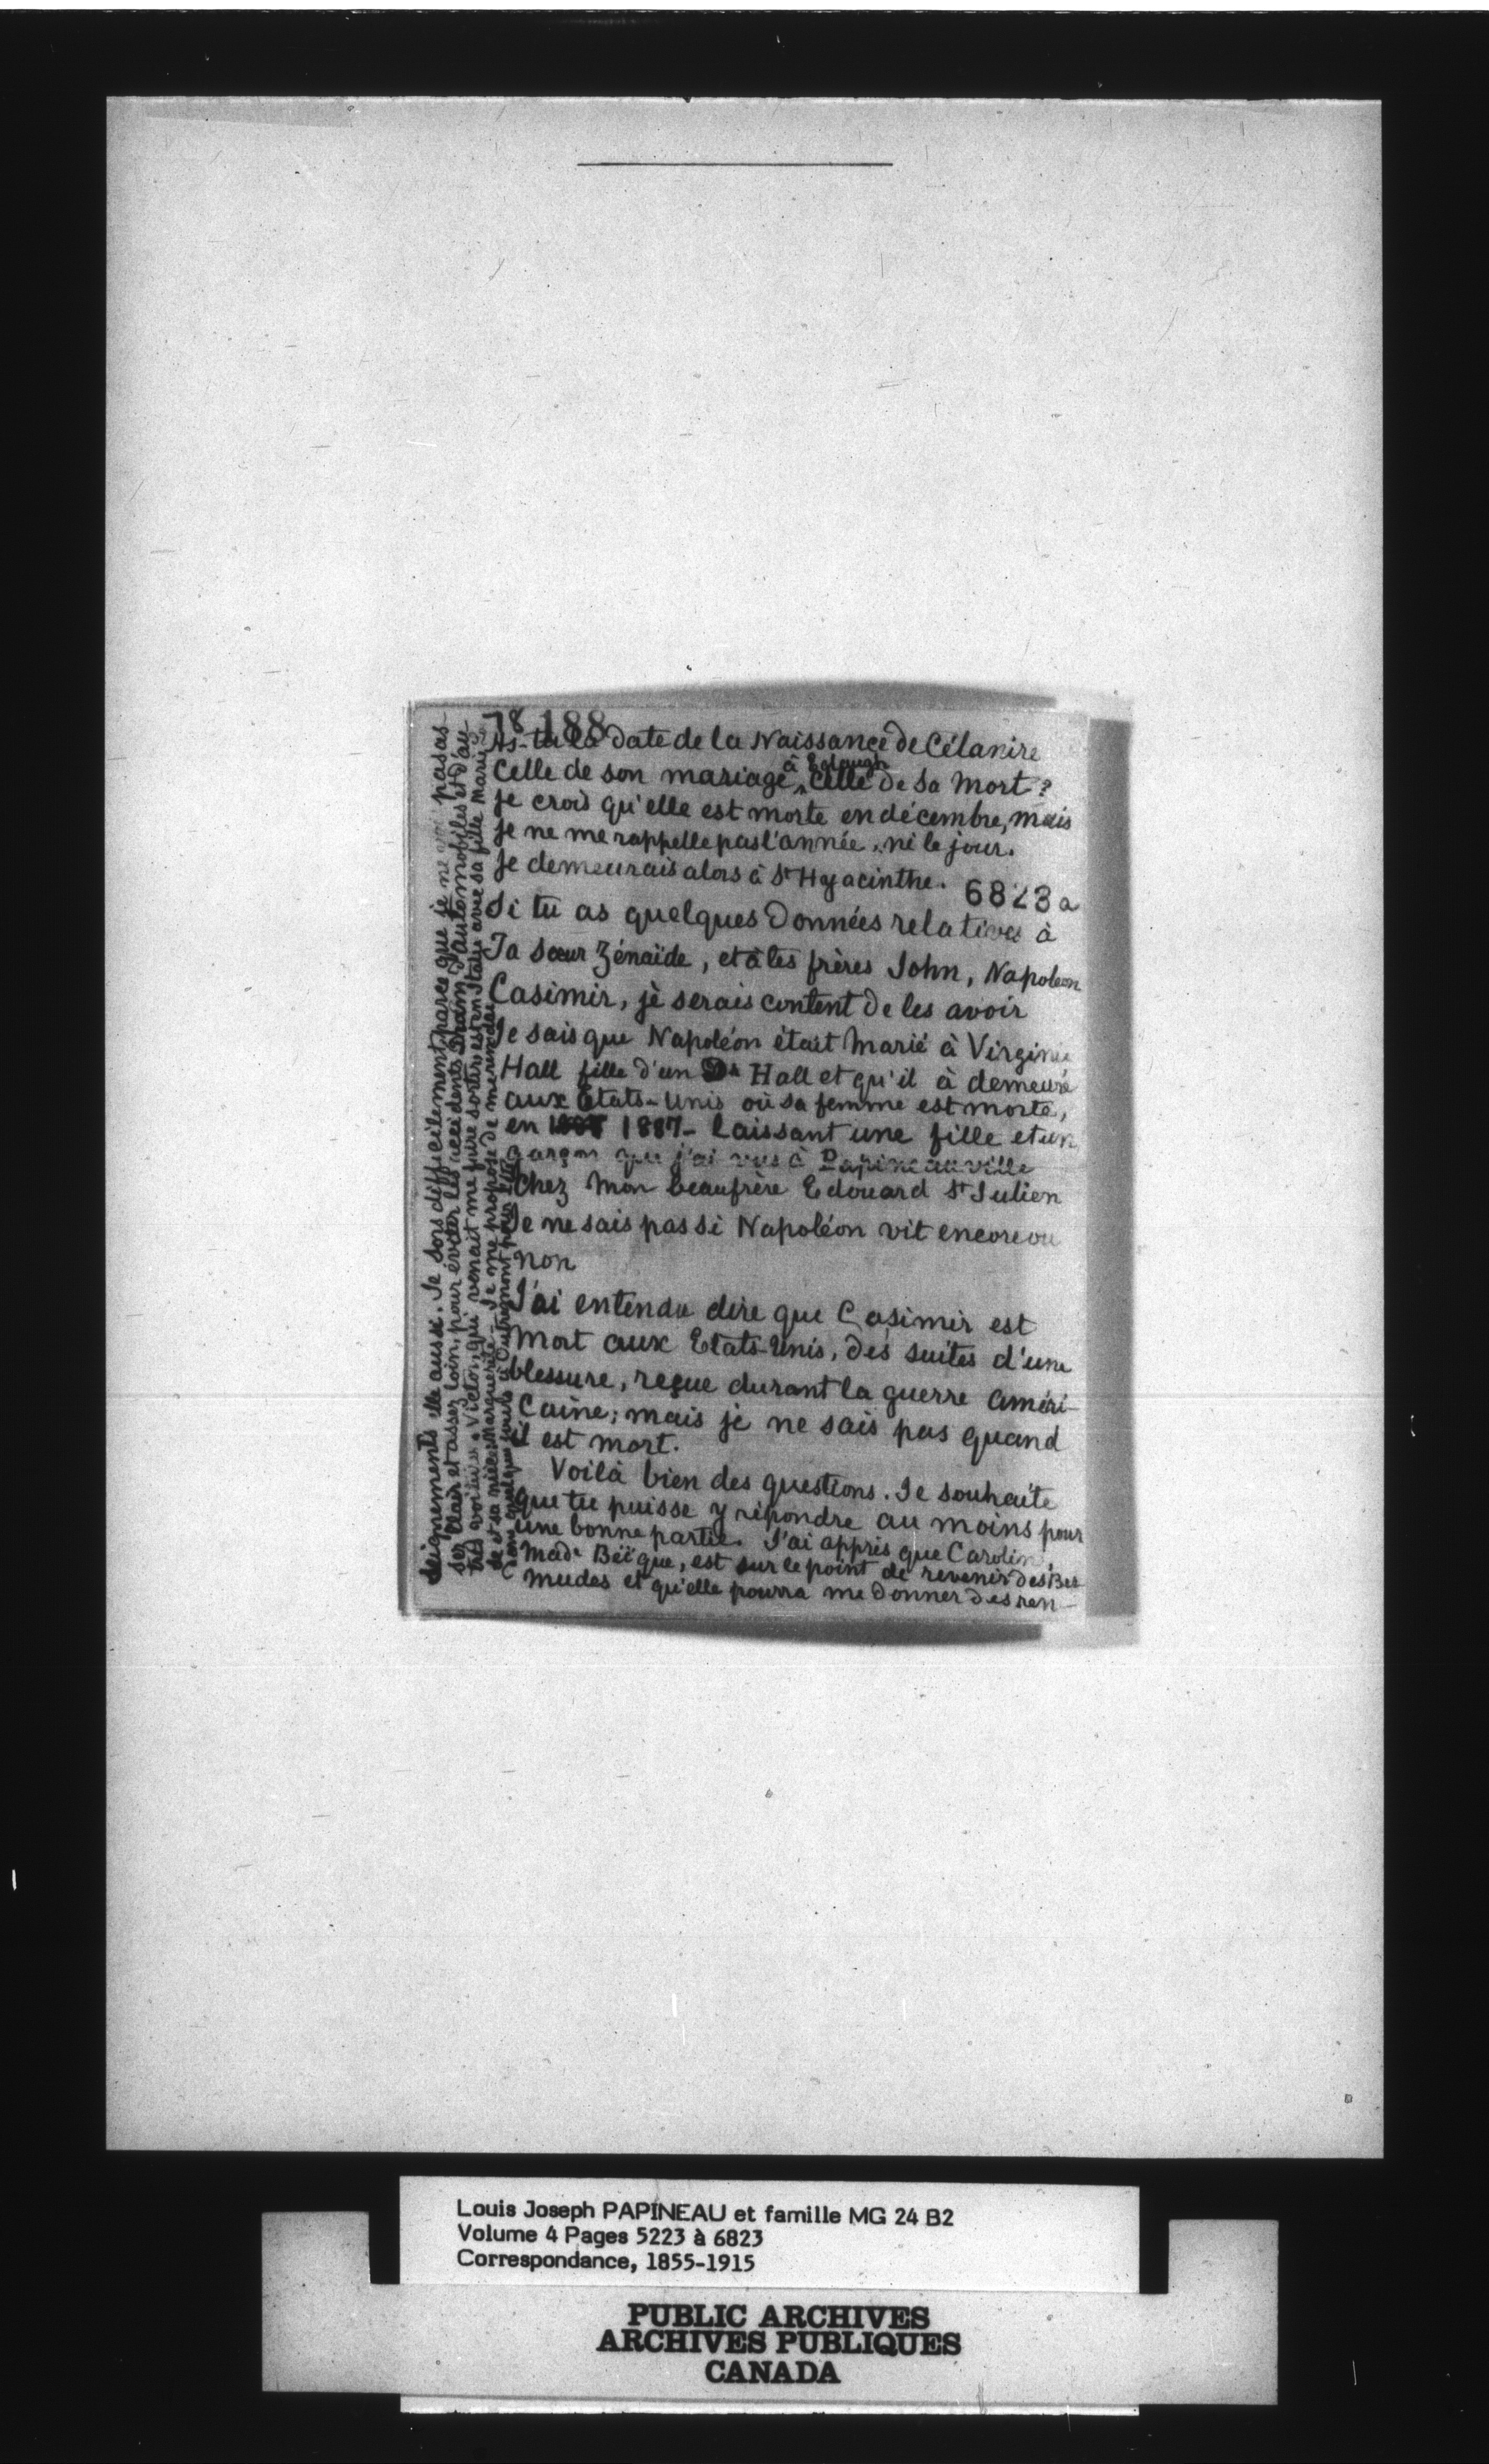 78 188
As-tu la date de la Naissance de Célanire
Celle de son mariage à Eglaugh celle de sa Mort?
je crois qu'elle est morte en décembre, mais
je ne me rappelle pas l'année, ni le jour.
je demeurais alors à St Hyacinthe.
6823a
Si tu as quelques données relatives à
Ta soeur Zénaïde, et à tes frères John, Napoleon
Casimir, jè serais content de les avoir
Je sais que Napoléon était Marié à Virginie
Hall fille d'un Dr Hall et qu'il à demeuré
aux Etats-Unis où sa femme est morte,
en 1887 - laissant une fille et un
garçon que j'ai vus à Papineauville
Chez Mon beaufrère Edouard St Julien
Je ne sais pas si Napoléon vit encore ou
non
J'ai entendu dire que Casimir est
Mort aux Etats-Unis, des suites d'une
blessure, reçue durant la guerre Améri-
Caine; mais je ne sais pas quand
il est mort.
Voilà bien des questions. Je souhaite
que tu puisse y répondre au moins pour
une bonne partie. J'ai appris que Caroline,
Made Béïque, est sur le point de revenir des Ber-
mudes et qu'elle pourra me donner des ren-
seignements elle aussi. Je sors difficilement parce que je ne voi pas as-
sez Clair et assez loin, pour éviter les accidents Dram, d'automobiles et d'au-
tres voitures. Victor, qui venait me faire sortir est en Italie avec sa fille Marie
de et sa nièce Marguerite - Je me propose de me rendre
dans quelques jours à Outremont
Louis Joseph PAPINEAU et famille MG 24 B2
Volume 4 Pages 5223 à 6823
Correspondance, 1855-1915
PUBLIC ARCHIVES
ARCHIVES PUBLIQUES
CANADA